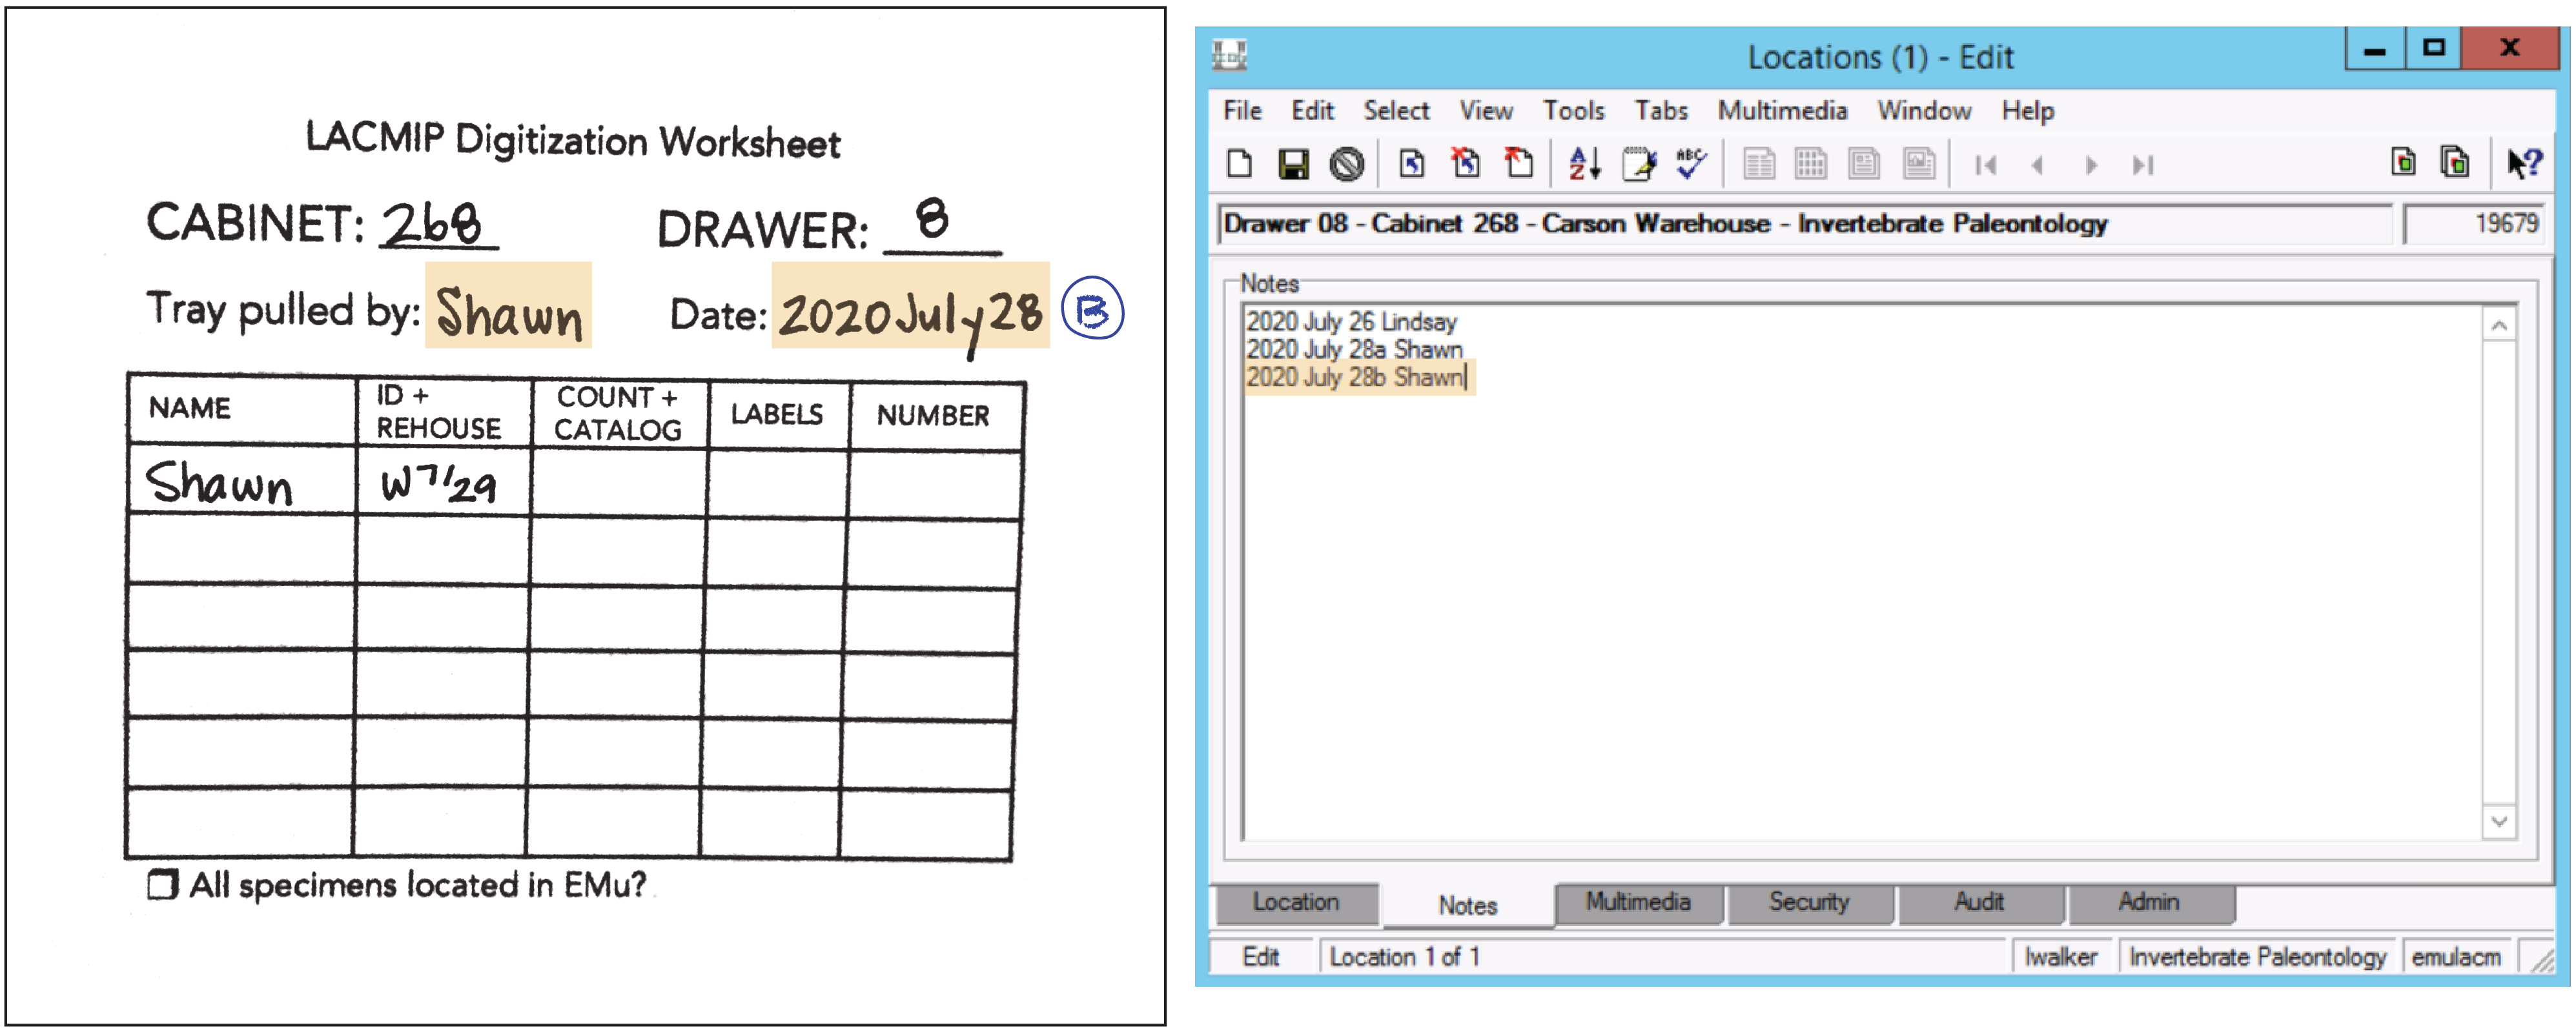 LACMIP Digitization Worksheet
CABINET: 268 DRAWER: 8
Tray pulled by: Shawn Date: 2020 July 28 B
NAME ID + REHOUSE COUNT + CATALOG LABELS NUMBER
Shawn W 7/29
All specimens located in EMu?
Locations (1) - Edit
File Edit Select View Tools Tabs Multimedia Window Help
Drawer 08 - Cabinet 268 - Carson Warehouse - Invertebrate Paleontology 19679
Notes
2020 July 26 Lindsay
2020 July 28a Shawn
2020 July 28b Shawn
Location Notes Multimedia Security Audit Admin
Edit Location 1 of 1 lwalker Invertebrate Paleontology emulacm